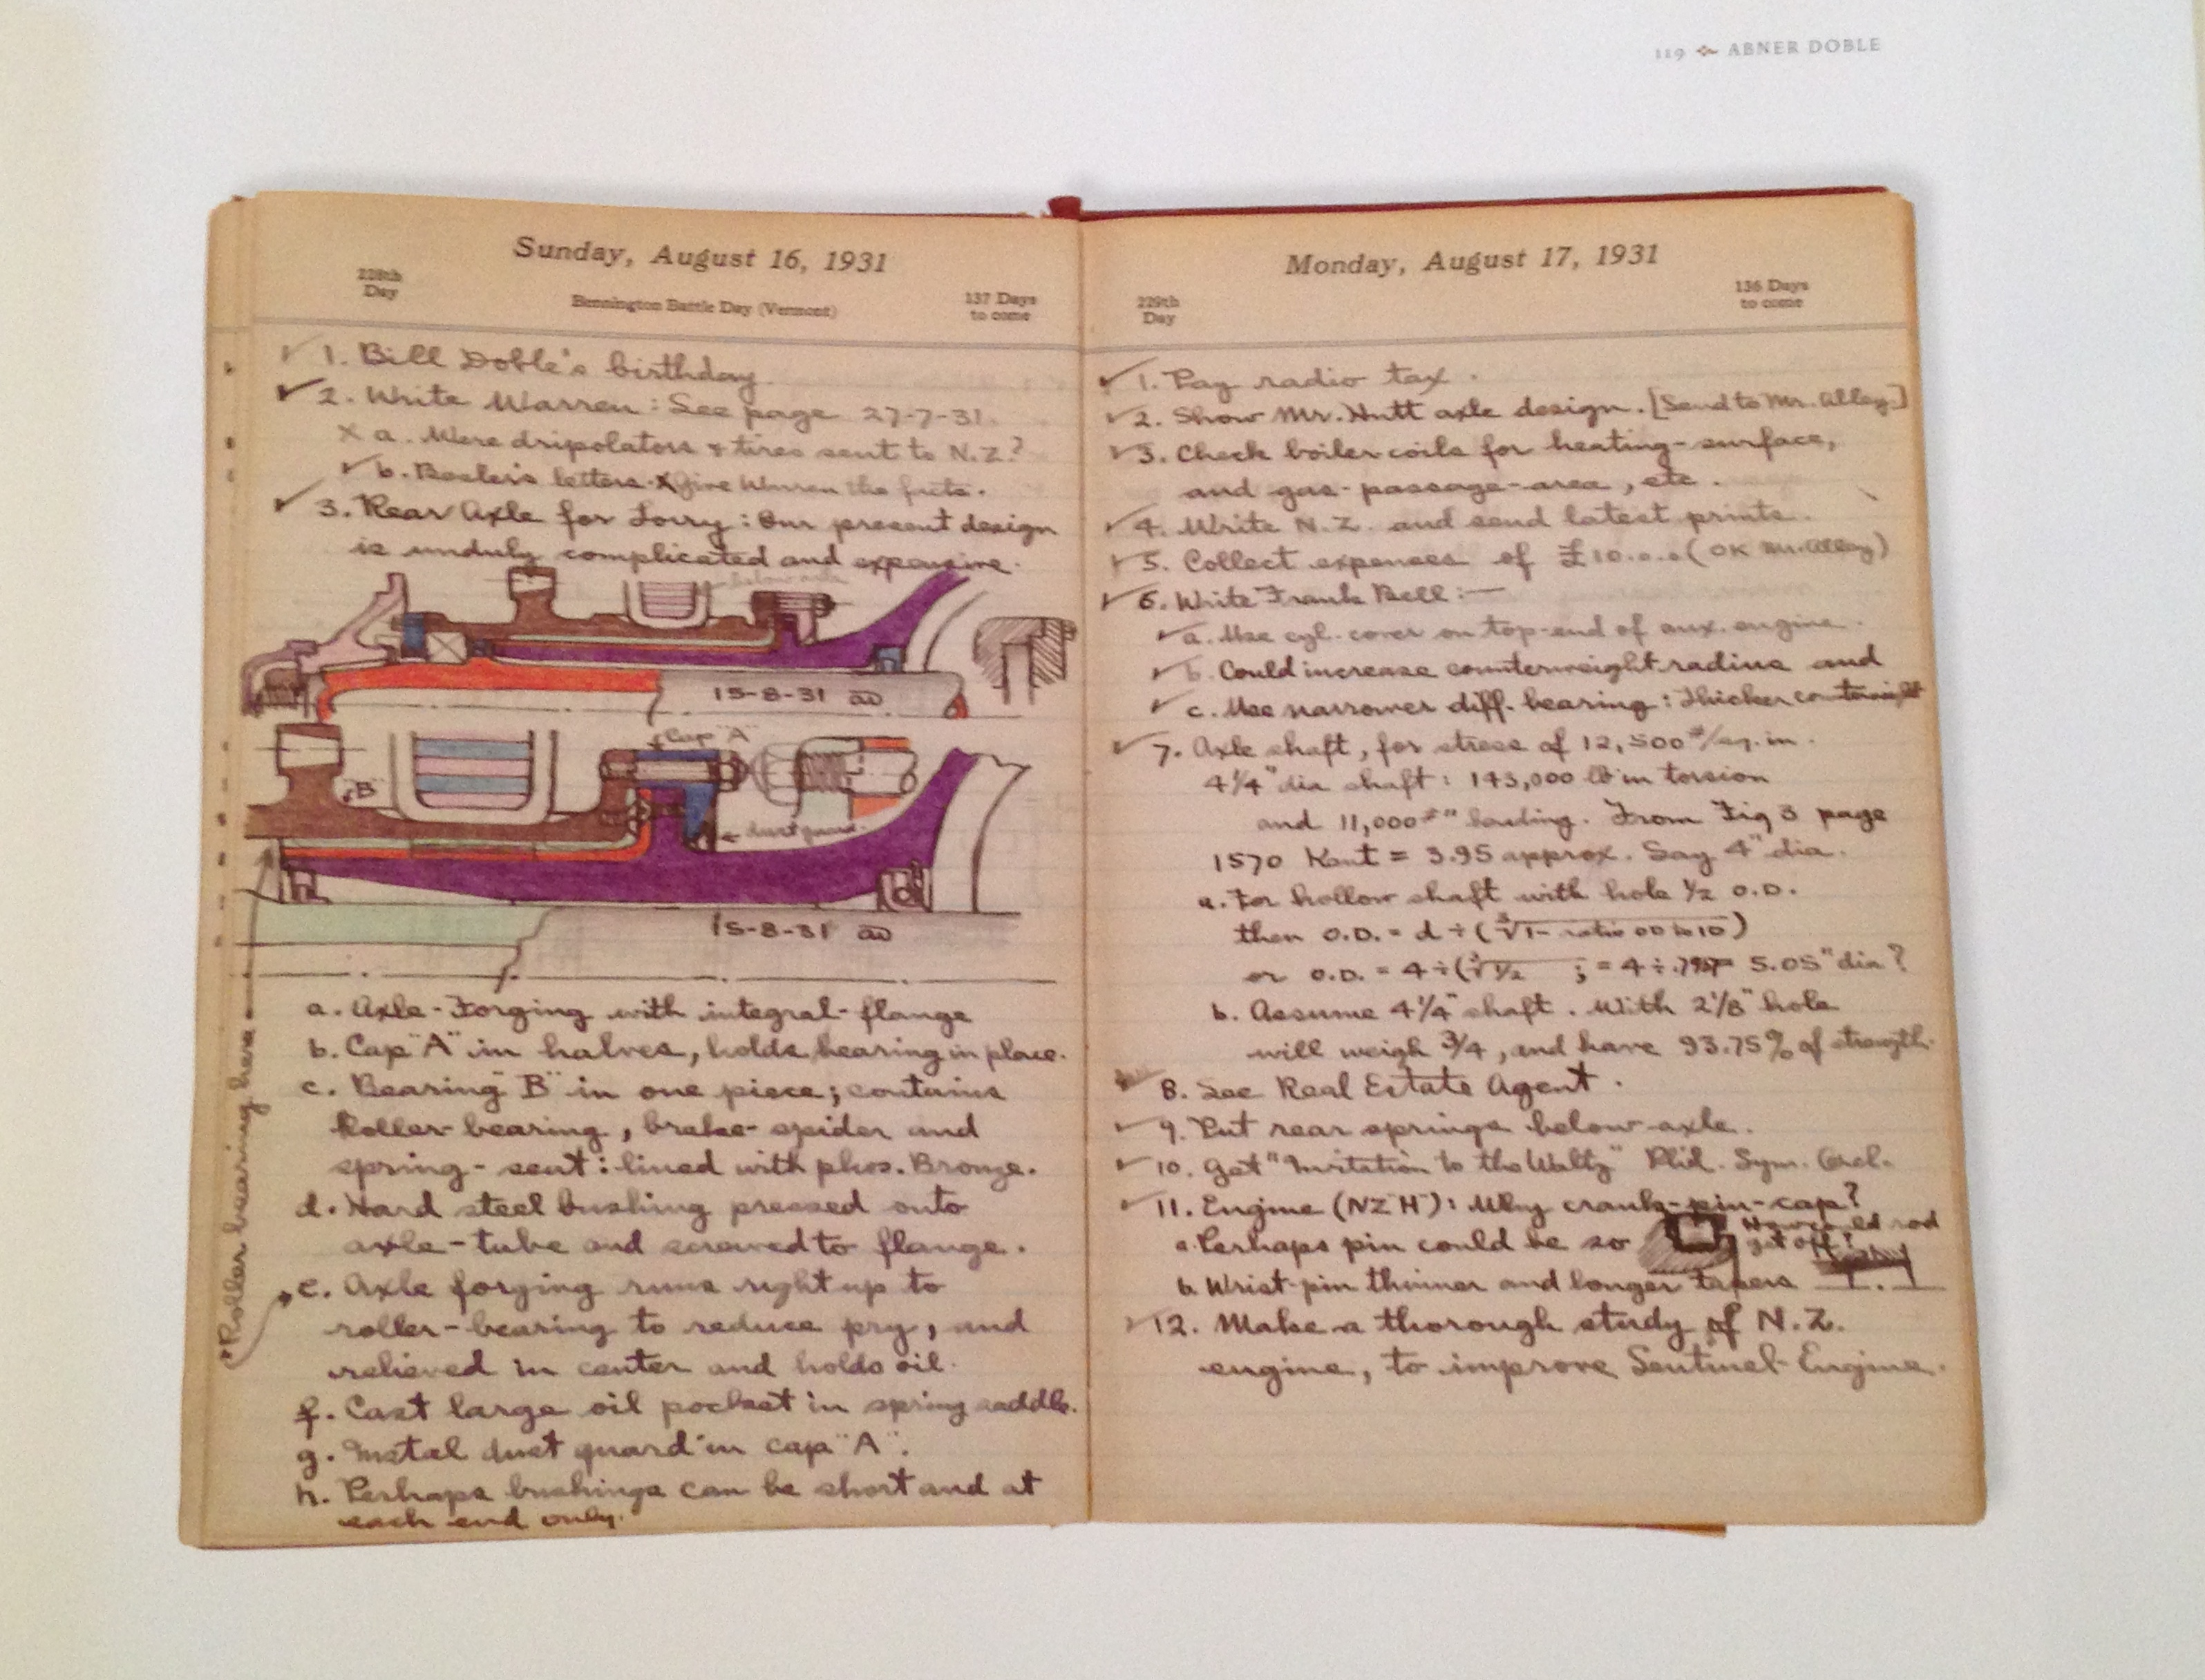 119 ABNER DOBLE
Sunday, August 16, 1931
228th
Day
Bennington Battle Day (Vermont)
137 Days
to come
1. Bill Doble's birthday
2. Write Warren: See page 27-7-31.
a. Were dripolators & tires sent to N.Z.?
b. Besler's letters. X Give Warren the facts.
3. Rear Axle for Lorry: Our present design
is unduly complicated and expensive.
below axle
15-8-31 aD
Cap "A"
"B"
dust guard.
15-8-31 aD
a. Axle-Forging with integral-flange
b. Cap "A" in halves, holds bearing in place.
c. Bearing "B" in one piece; contains
Roller-bearing, brake-spider and
spring-seat: lined with phos. Bronze.
d. Hard steel bushing pressed onto
axle-tube and screwed to flange.
e. Axle forging runs right up to
roller-bearing to reduce pry, and
relieved in center and holds oil.
f. Cast large oil pocket in spring saddle.
g. Metal dust guard in cap "A".
h. Perhaps bushings can be short and at
each end only.
Roller bearing here
Monday, August 17, 1931
229th
Day
136 Days
to come
1. Pay radio tax.
2. Show Mr. Nutt axle design. [Send to Mr. Alley.]
3. Check boiler coils for heating-surface,
and gas-passage-area, etc.
4. Write N.Z. and send latest prints.
5. Collect expenses of £10.0.0 (OK Mr. Alley)
6. Write Frank Bell:—
a. Use cyl. cover on top-end of aux. engine.
b. Could increase counterweight radius and
c. Use narrower diff. bearing: Thicker counterweight
7. Axle shaft, for stress of 12,500 #/sq. in.
4¼" dia shaft: 143,000 lb in torsion
and 11,000 #" bending. From Fig 3 page
1570 Kent = 3.95 approx. Say 4" dia.
a. For hollow shaft with hole ½ O.D.
then O.D. = d ÷ (∛1- ratio OD to ID)
or O.D. = 4 ÷ (∛½ ; = 4 ÷ .795= 5.05" dia?
b. Assume 4¼" shaft. With 2⅛" hole
will weigh ¾, and have 93.75% of strength.
8. See Real Estate Agent.
9. Put rear springs below axle.
10. Get "Invitation to the Waltz" Phil. Sym. Orch.
11. Engine (NZ"H"): Why crank-pin-cap?
a. Perhaps pin could be so
How could rod
get off?
b. Wrist-pin thinner and longer tapers
12. Make a thorough study of N.Z.
engine, to improve Sentinel Engine.